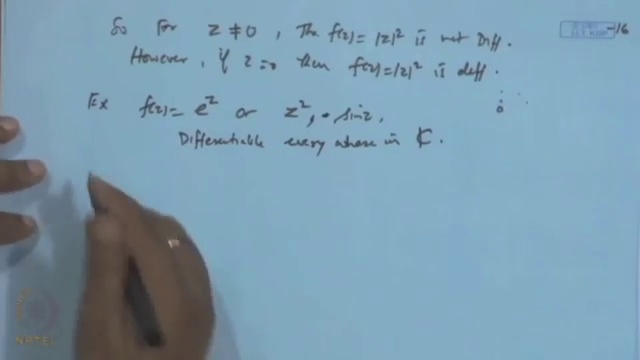 So For z ≠ 0, The f(z) = |z|² is not Diff.
However, if z = 0 then f(z) = |z|² is diff.
Ex f(z) = e^z or z², sin z,
Differentiable every where in ℂ.
NPTEL
-16